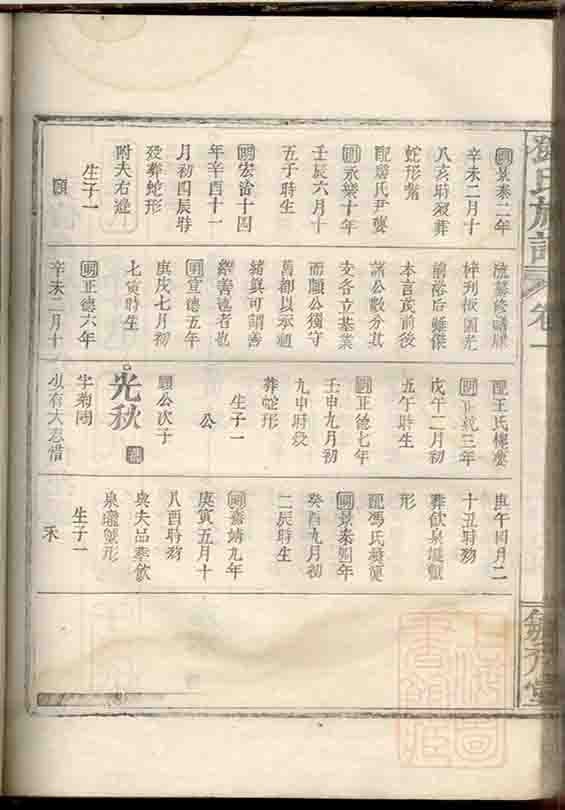 氏族譜 卷一
明景泰二年
辛未二月十
八亥時歿葬
蛇形觜
配唐氏尹婆
明永樂十年
壬辰六月十
五子時生
明宏治十四
年辛酉十一
月初四辰時
歿葬蛇形
附夫右邊
生子一
願
梓刋板圖光
前裕后雖傑
本言茂前後
諸公數分其
支各立基業
而願公獨守
舊都以承祖
緒眞可謂善
繼善述者也
明宣德五年
庚戌七月初
七寅時生
明正德六年
辛未二月十
配王氏樓婆
明正統三年
戊午二月初
五午時生
明正德七年
壬申九月初
九申時歿
葬蛇形
生子一
公
願公次子
光秋
字菊圃
少有大志惜
庚午四月二
十丑時歿
葬飲泉
形
配馮氏
明景泰四年
癸酉九月初
二辰時生
明嘉靖九年
庚寅五月十
八酉時歿
與夫品葬飲
泉形
生子一
禾
上海圖書館藏